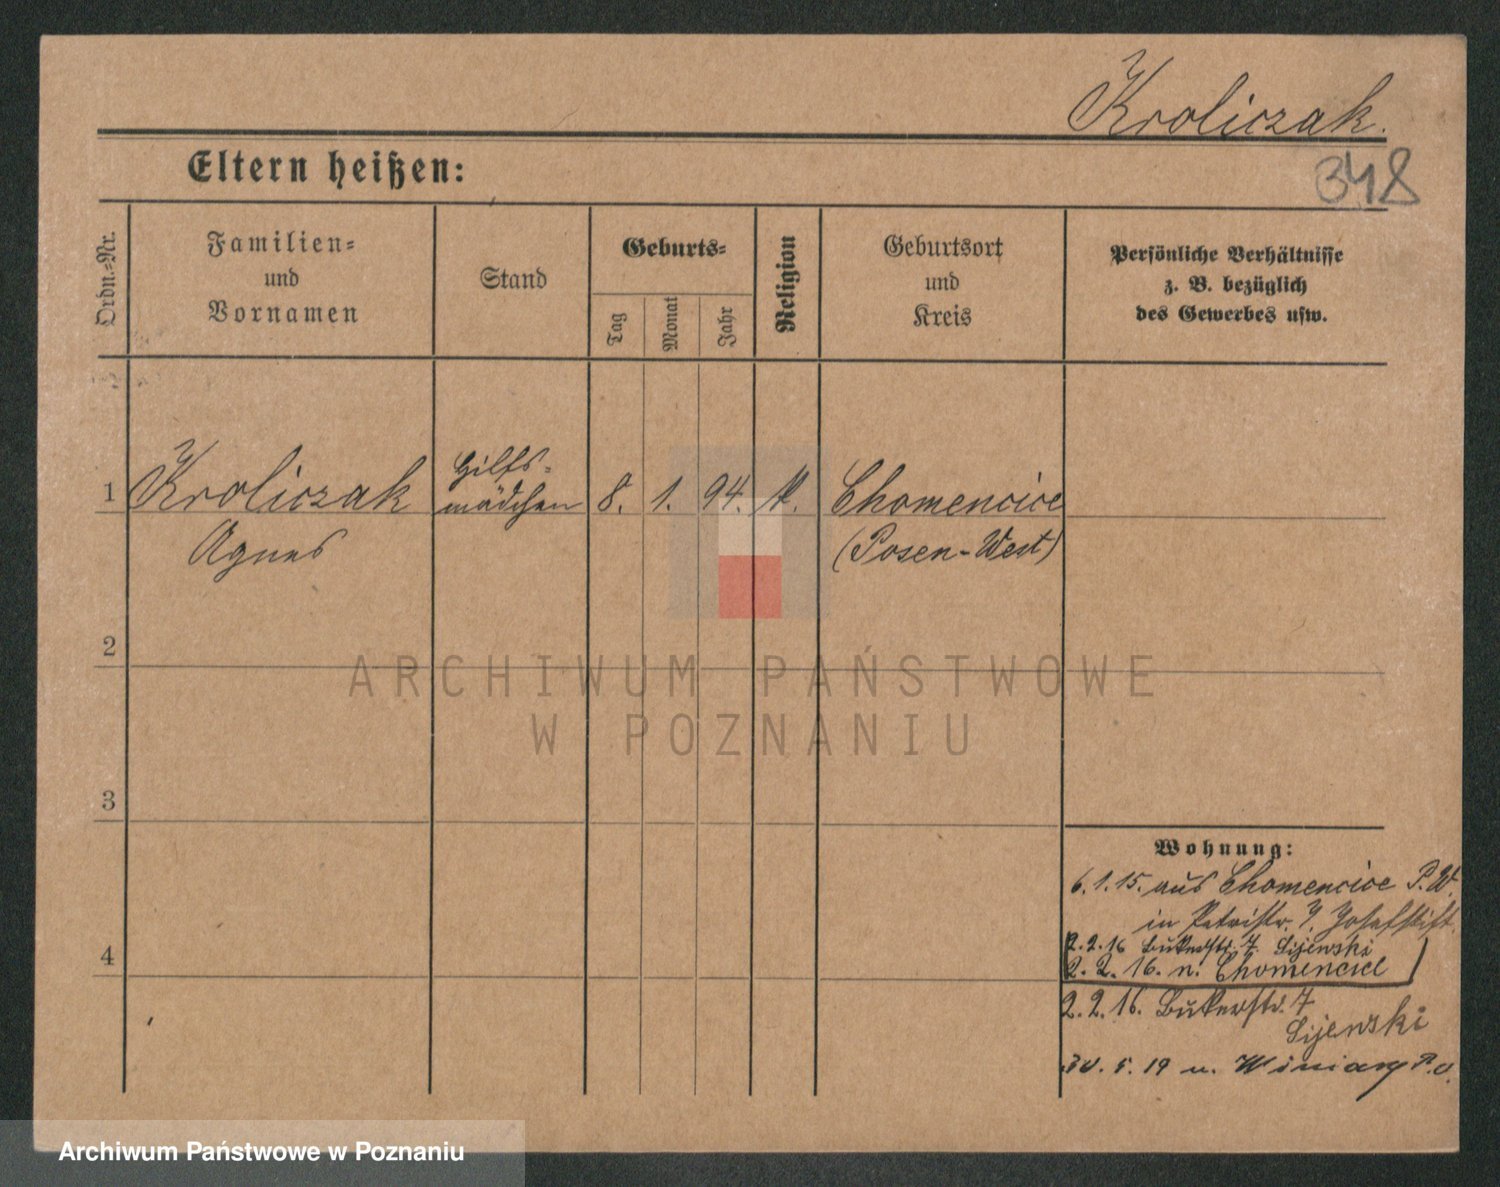 Kroliczak.
348
Eltern heißen:
Ordn.-Nr.
Familien-
und
Vornamen
Stand
Geburts-
Tag
Monat
Jahr
Religion
Geburtsort
und
Kreis
Persönliche Verhältnisse
z. B. bezüglich
des Gewerbes usw.
1 Kroliczak Hilfs-
mädchen 8. 1. 94. K. Chomencice
Agnes (Posen-West)
2
3
4
ARCHIWUM PAŃSTWOWE
W POZNANIU
Wohnung:
6.1.15. aus Chomencice P.W.
in Petristr. 7. Josefstift.
2.2.16 Bukerstr. 7. Sijewski
2.2.16. n. Chomencice
2.2.16. Bukerstr. 7
Sijewski
30. 5. 19 n. Winiary P.O.
Archiwum Państwowe w Poznaniu